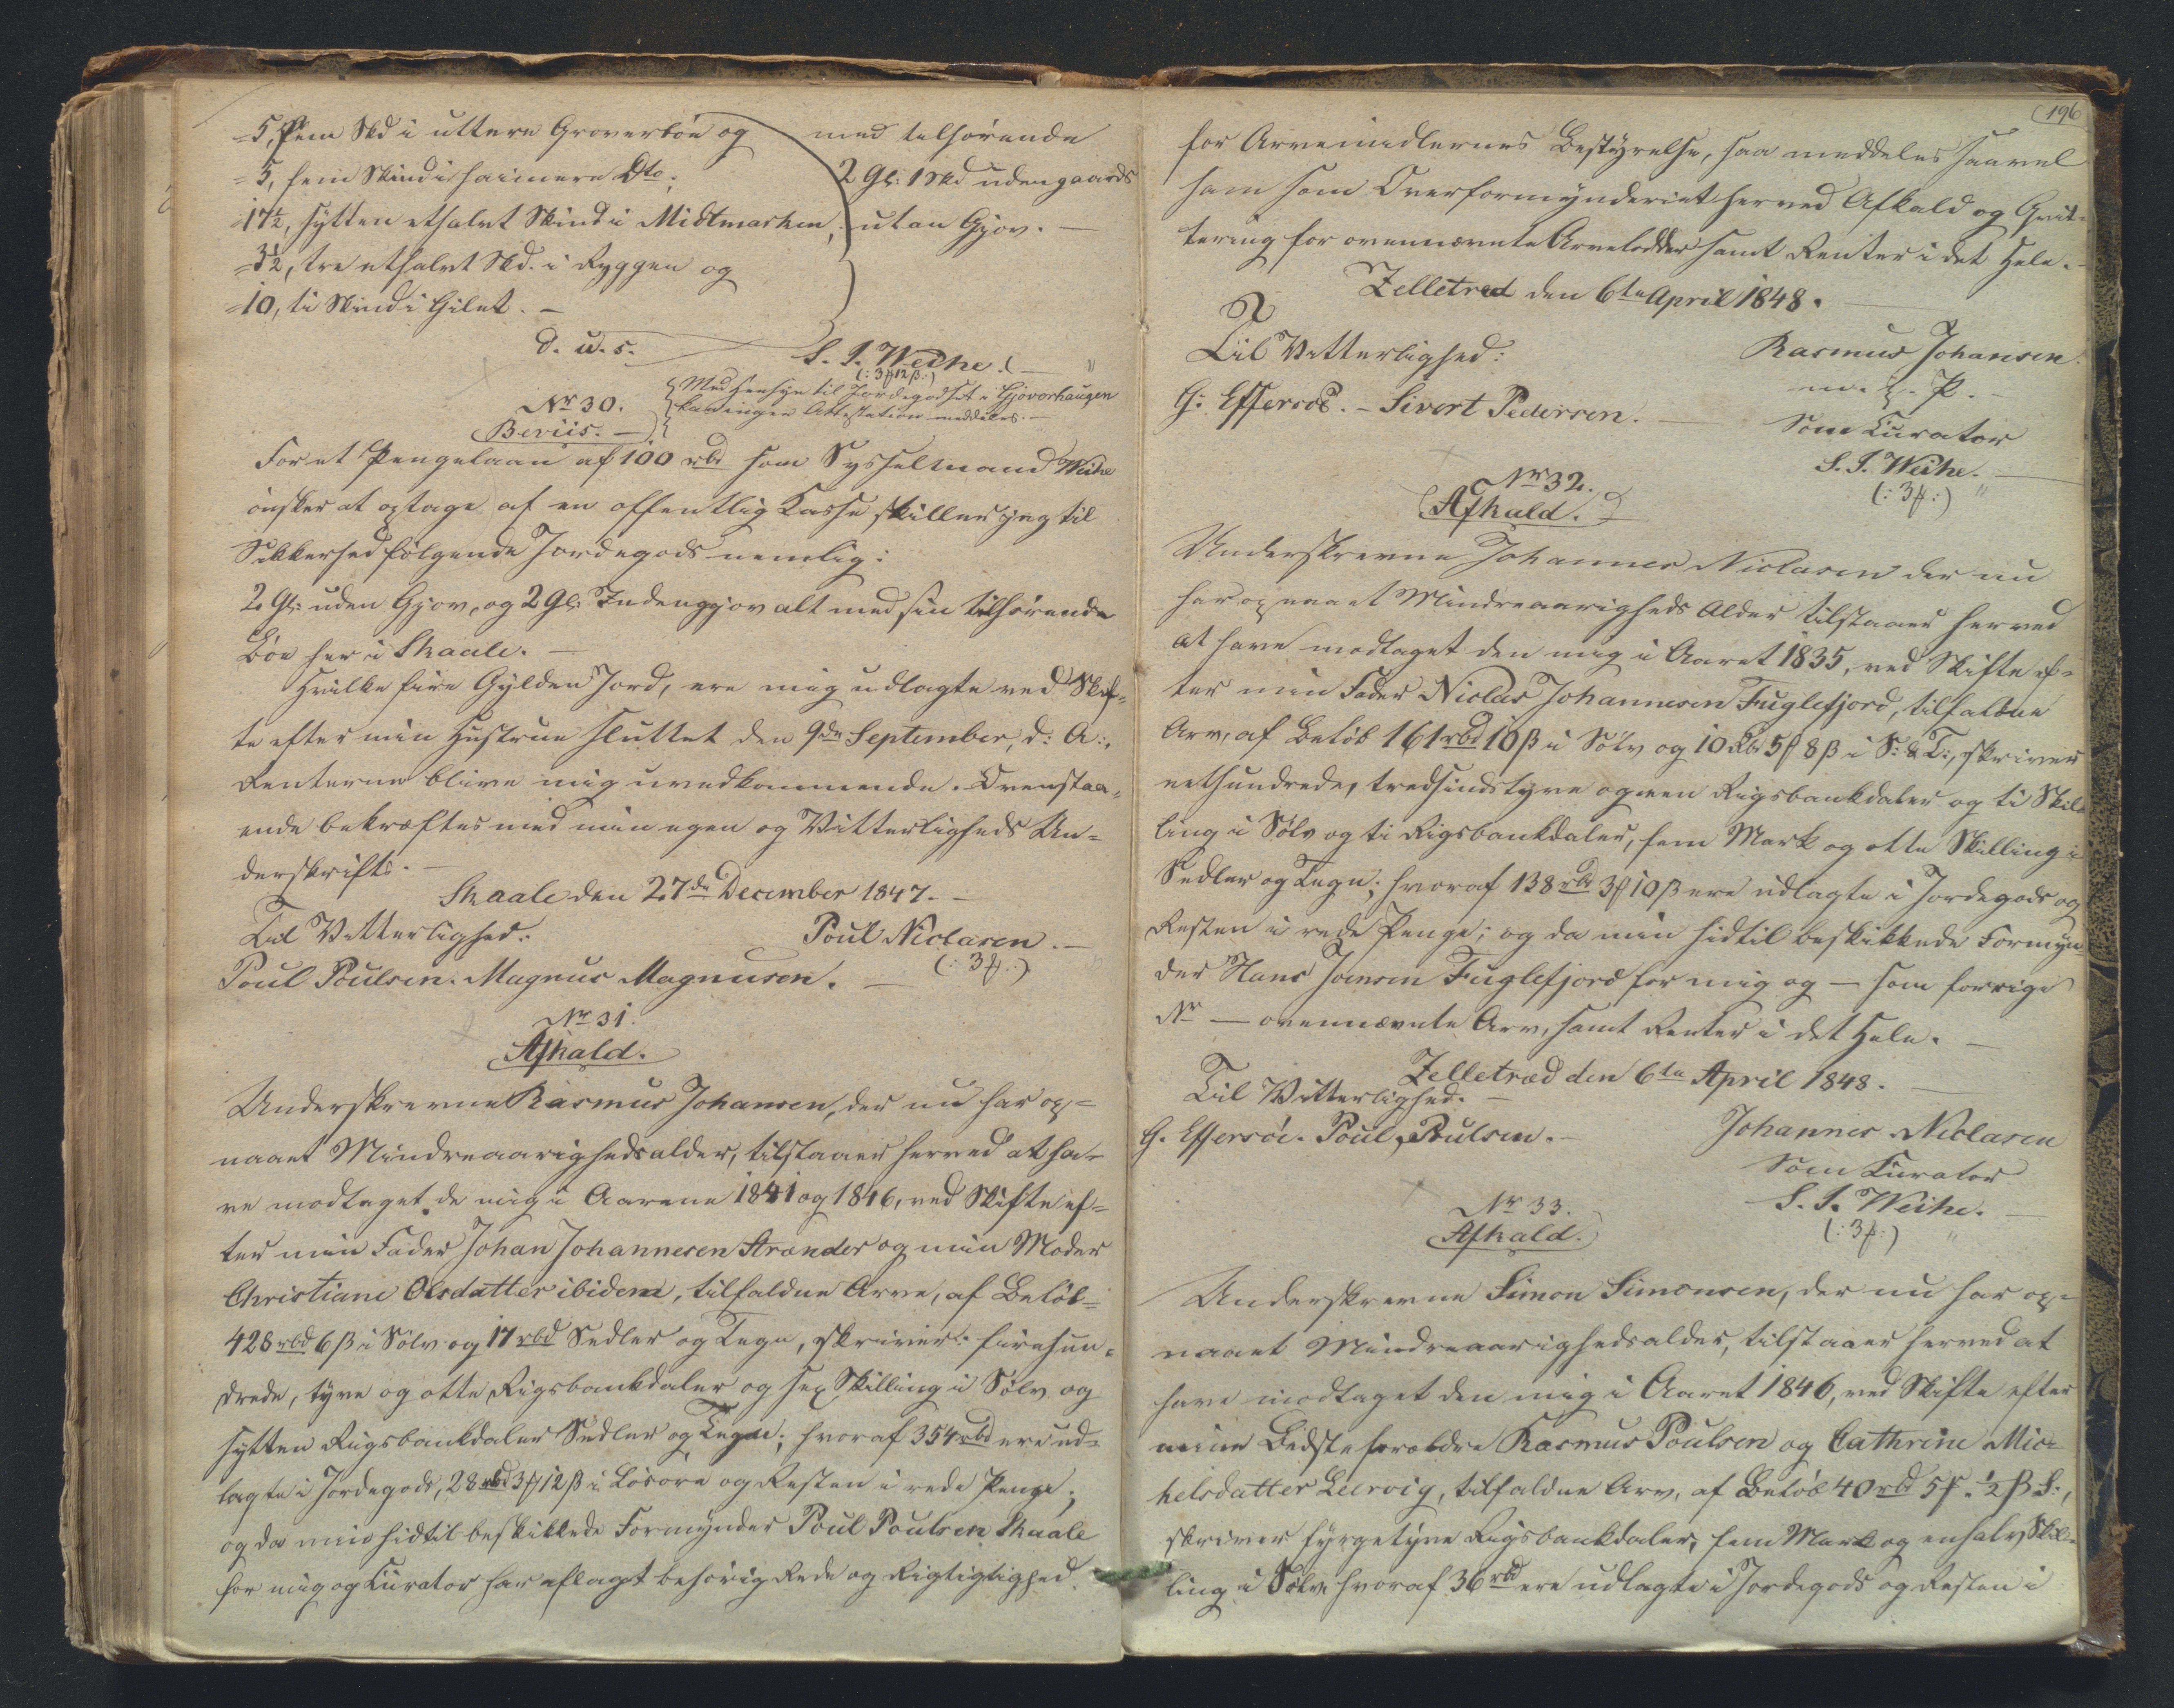 5, fem Skd i uttere Groverböe og
= 5, fem Skind i haimere Dto.
= 17½, sytten ethalvt Skind i Midtmarken,
= 3½, tre ethalvt Skd. i Ryggen og
= 10, ti Skind i Gilet. —
med tilhörende
2 Gl: 1 Skd udengaards
utan Gjov. —
d. u. s.
S. I. Weihe. (—
(: 3 ℳ 12 β :)
Nr 30.
Beviis. —
Med Hensyn til Jordegodset i Gjovarhaugen
kan ingen Attestation meddeles. —
For et Pengelaan af 100 rbd som Sysselmand Weihe
önsker at optage af en offentlig Casse stiller jeg til
Sikkerhed fölgende Jordegods nemlig:
2 Gl: uden Gjov, og 2 Gl: Indengjov alt med sin tilhörende
Böe her i Skaale. —
Hvilke fire Gylden Jord, ere mig udlagte ved Skif=
te efter min Hustrue sluttet den 9de September, d: A:,
Renterne blive mig uvedkommende. Ovenstaa=
ende bekræftes med min egen og Vitterligheds Un=
derskrift. —
Skaale den 27de December 1847. —
Til Vitterlighed:
Poul Niclasen. —
Poul Poulsen. Magnus Magnusen. —
(: 3 ℳ :)
Nr 31.
Afkald.
Underskrevne Rasmus Johansen, der nu har op=
naaet Mindreaarighedsalder, tilstaaer herved at ha=
ve modtaget de mig i Aarene 1841 og 1846, ved Skifte ef=
ter min Fader Johan Johannesen Strænder og min Moder
Christiane Olsdatter ibidem, tilfaldne Arve, af Belöb=
428 rbd 6 β i Sölv og 17 rbd Sedler og Tegn, skriver: firehun=
drede, tyve og otte Rigsbankdaler og sex Skilling i Sölv og
sytten Rigsbankdaler Sedler og Tegn; hvoraf 354 rbd ere ud=
lagte i Jordegods, 28 rbd 3 ℳ 12 β i Lösöre og Resten i rede Penge;
og da min hidtil beskikkede Formynder Poul Poulsen Skaale
for mig og Curator har aflagt behörig Rede og Rigtigtighed
196
for Arvemidlernes Bestyrelse, saa meddeles saavel
ham som Overformynderiet herved Afkald og Qvit=
tering for ovennævnte Arvelodder samt Renter i det Hele. —
Zelletræd den 6te April 1848. —
Til Vitterlighed:
Rasmus Johansen.
m. f. P.
G: Effersöe. — Sivert Pedersen. —
Som Curator
S. I. Weihe. —
(: 3 ℳ :)
Nr 32.
Afkald.
Underskrevne Johannes Niclasen der nu
har opnaaet Mindreaarigheds Alder tilstaaer herved
at have modtaget den mig i Aaret 1835, ved Skifte ef=
ter min Fader Niclas Johannesen Fuglefjord, tilfaldne
Arv, af Belöb 161 rbd 10 β i Sölv og 10 Rbd 5 ℳ 8 β i S: & T:, skriver
eethundrede, tredsindstyve og een Rigsbankdaler og ti Skil=
ling i Sölv og ti Rigsbankdaler, fem Mark og otte Skilling i
Sedler og Tegn; hvoraf 138 rbd 3 ℳ 10 β ere udlagte i Jordegods og
Resten i rede Penge; og da min hidtil beskikkede Formyn=
der Hans Joensen Fuglefjord for mig og — som forrige
Nr — ovennævnte Arv, samt Renter i det Hele. —
Zelletræd den 6te April 1848. —
Til Vitterlighed. —
G. Effersöe. Poul Poulsen. —
Johannes Niclasen
Som Curator
S. I. Weihe. —
(: 3 ℳ :)
Nr 33.
Afkald.
Underskrevne Simon Simonsen, der nu har op=
naaet Mindreaarighedsalder, tilstaaer herved at
have modtaget den mig i Aaret 1846, ved Skifte efter
mine Bedsteforældre Rasmus Poulsen og Cathrine Mic=
helsdatter Leervig, tilfaldne Arv, af Belöb 40 rbd 5 ℳ. ½ β S:,
skriver fyrgetyve Rigsbankdaler, fem Mark og enhalv Skil=
ling i Sölv, hvoraf 36 rbd ere udlagte i Jordegods og Resten i